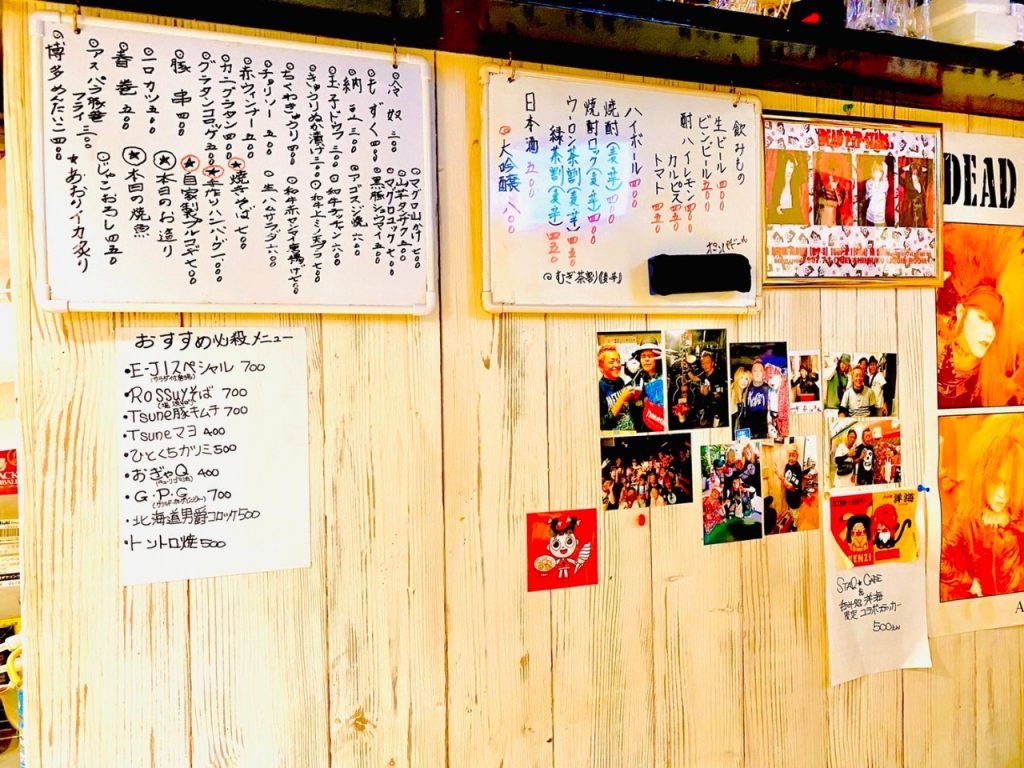 冷奴 三〇〇
もずく 四〇〇
納豆 三〇〇
玉子ドウフ 三〇〇
きゅうりぬか漬け 三〇〇
ちくわきゅうり 四〇〇
チョリソー 五〇〇
赤ウィンナー 五〇〇
カニグラタン 四〇〇
グラタンコロッケ 五〇〇
豚串 四〇〇
一口カツ 五〇〇
春巻 五〇〇
アスパラ豚巻フライ 三〇〇
博多めんたいこ 四〇〇
マグロ山かけ 七〇〇
山芋タンザク 五〇〇
マグロユッケ 七〇〇
生ハムサラダ 六〇〇
★焼きそば 七〇〇
★自家製プルコギ 七〇〇
★本日のお造り
★本日の焼魚
じゃこおろし 四五〇
★あおりイカ炙り
飲みもの
生ビール 四〇〇
ビンビール 五〇〇
酎ハイレモン 四〇〇
カルピス 四五〇
トマト 四五〇
ハイボール 四〇〇
焼酎(麦・芋) 四〇〇
焼酎ロック(麦・芋) 四〇〇
ウーロン茶割(麦・芋) 四五〇
緑茶割(麦・芋) 四五〇
むぎ茶割(麦・芋)
日本酒 五〇〇
大吟醸 八〇〇
おすすめ必殺メニュー
・E-J1スペシャル 700
・Rossuyそば 700
・Tsune豚キムチ 700
・Tsuneマヨ 400
・ひとくちガツミ 500
・おぎゃQ 400
・G・P・G 700
・北海道男爵コロッケ 500
・トントロ焼 500
DEAD POP STARS
DEAD
洋海
TENZI
STAQ★CAFE
&
呑み処 洋海
限定コラボステッカー
500